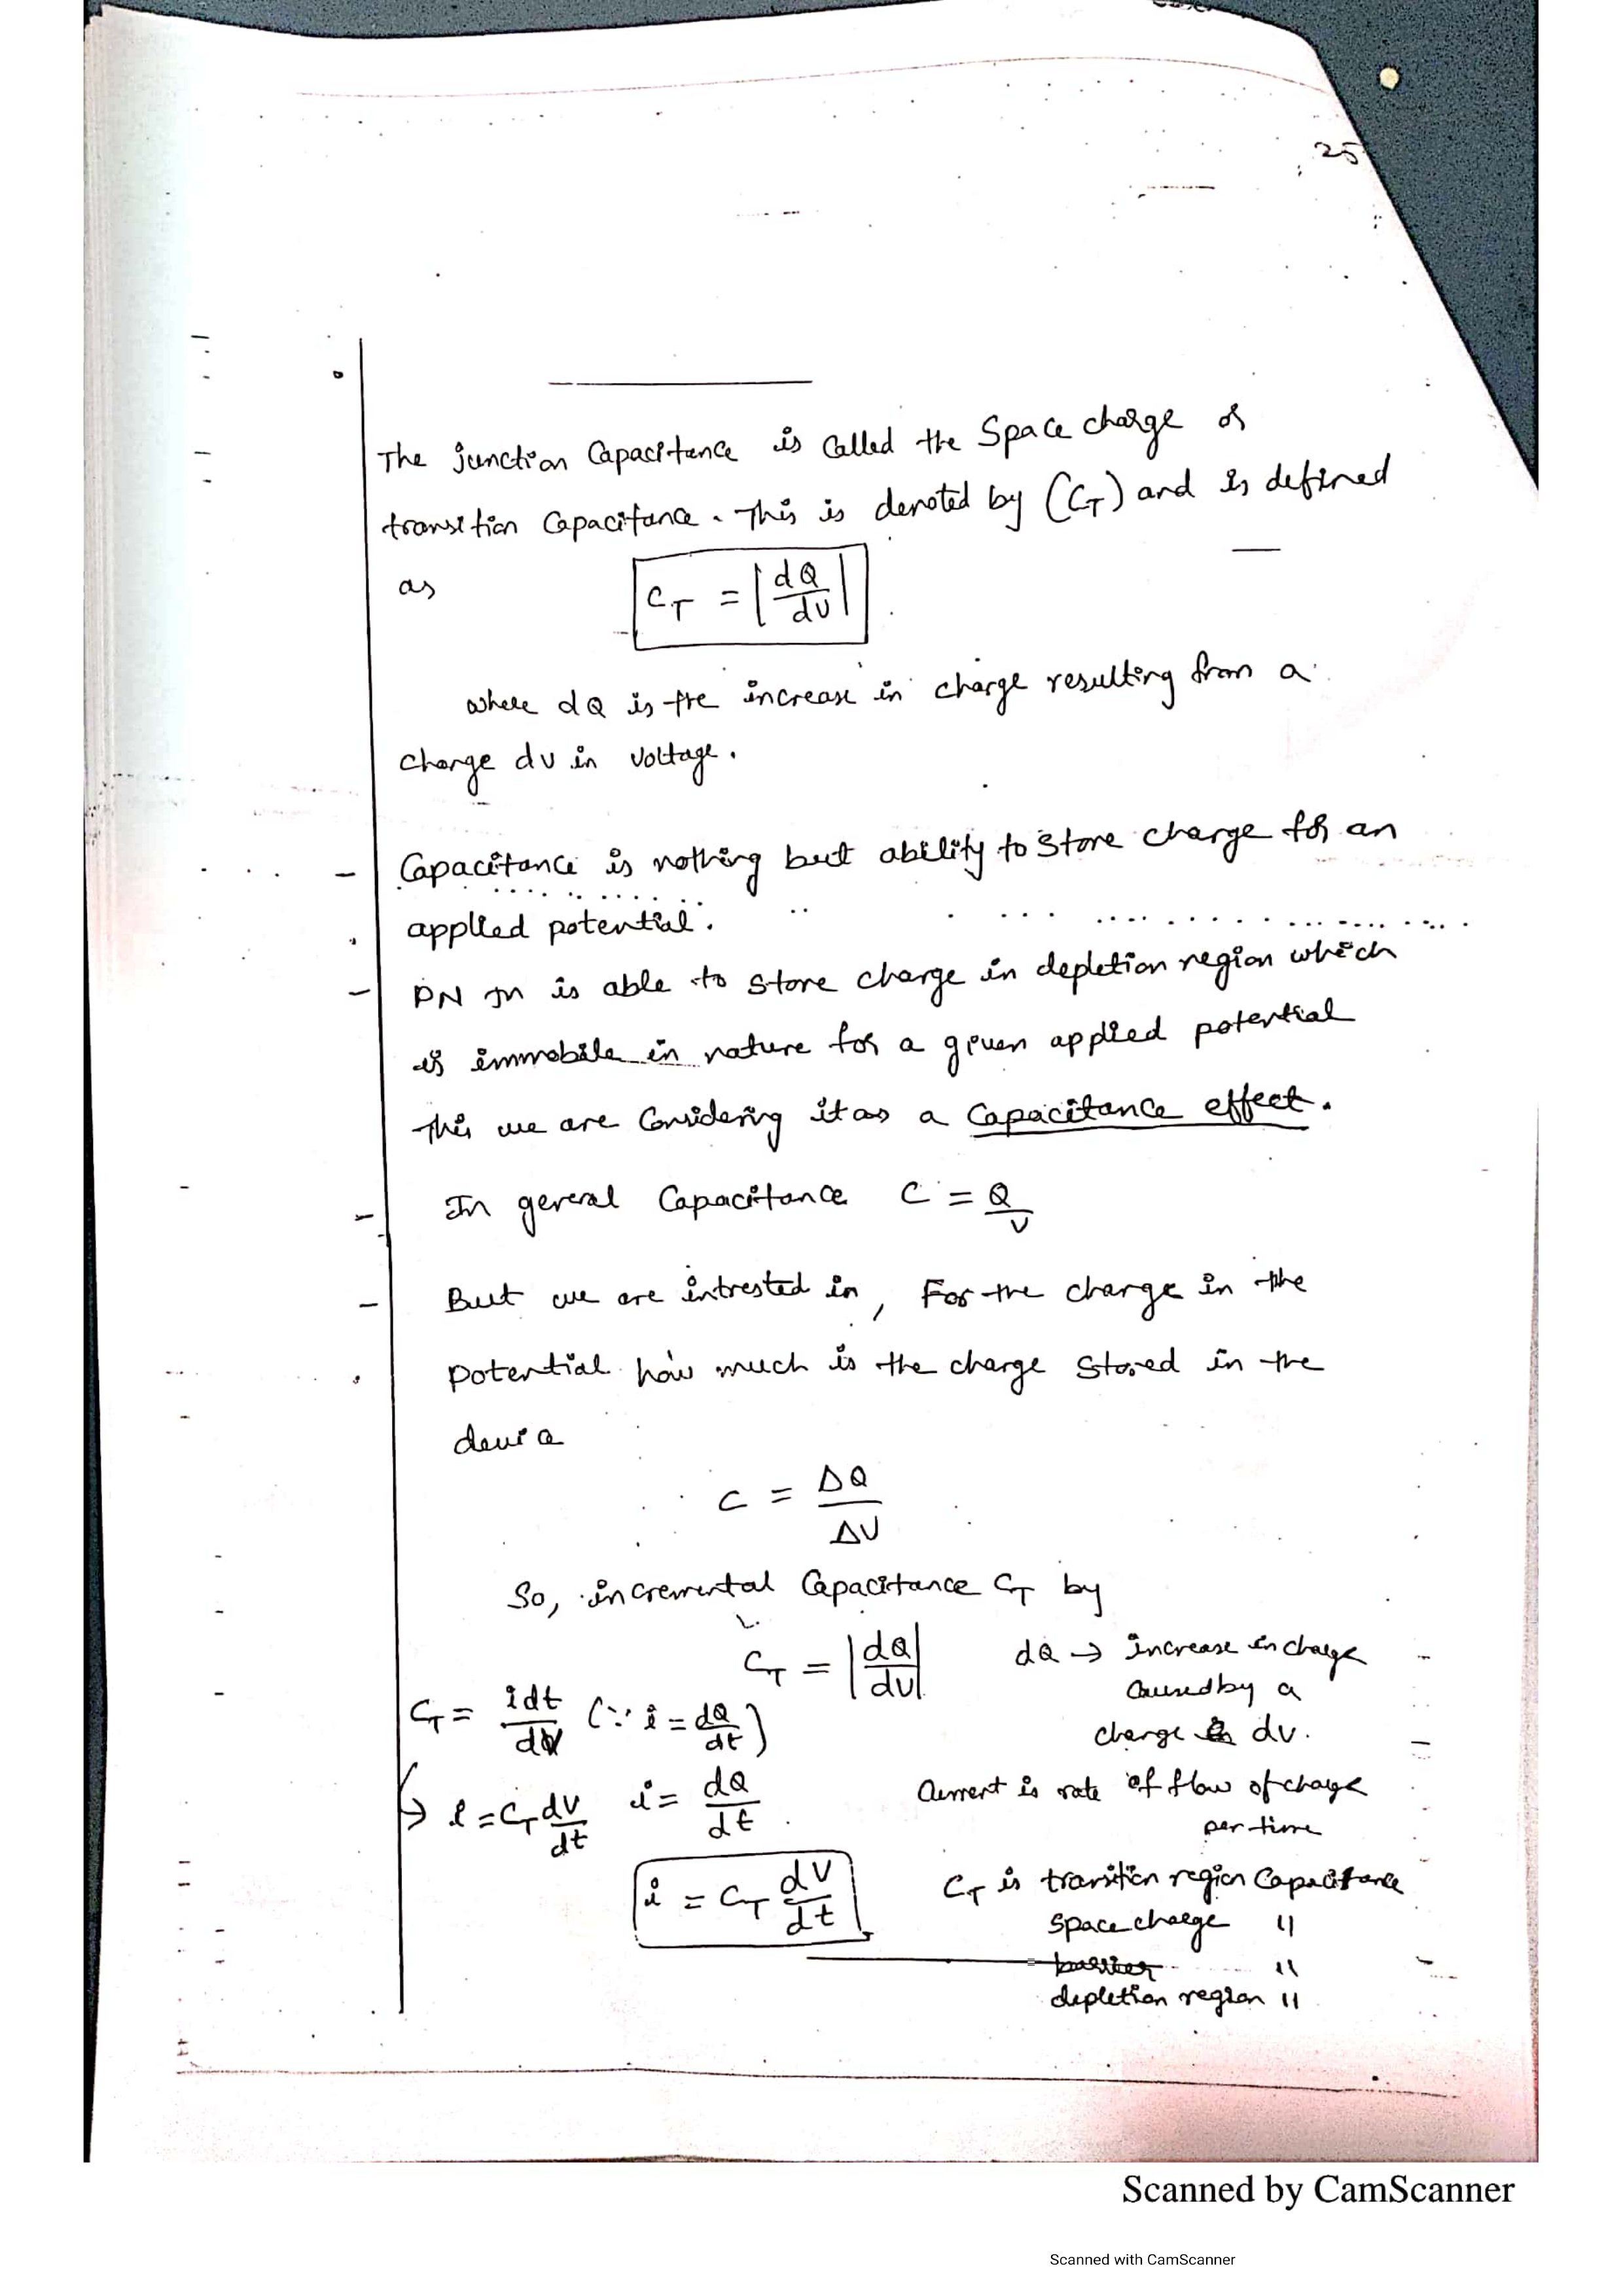 25
The junction Capacitance is Called the Space charge or
transition Capacitance. This is denoted by (CT) and is defined
as CT = |dQ/dv|
where dQ is the increase in charge resulting from a
change dv in voltage.
- Capacitance is nothing but ability to store charge for an
applied potential.
- PN Jn is able to store charge in depletion region which
is immobile in nature for a given applied potential
This we are Considering it as a Capacitance effect.
- In general Capacitance C = Q/V
- But we are intrested in, For the change in the
potential how much is the charge stored in the
device
C = ΔQ/ΔV
So, incremental Capacitance CT by
CT = |dQ/dv| dQ → increase in charge
caused by a
change in dv.
CT = idt/dV (∵ i = dQ/dt)
→ i = CT dv/dt i = dQ/dt
Current is rate of flow of charge
per time
i = CT dV/dt
CT is transition region Capacitance
space charge "
barrier "
depletion region "
Scanned by CamScanner
Scanned with CamScanner